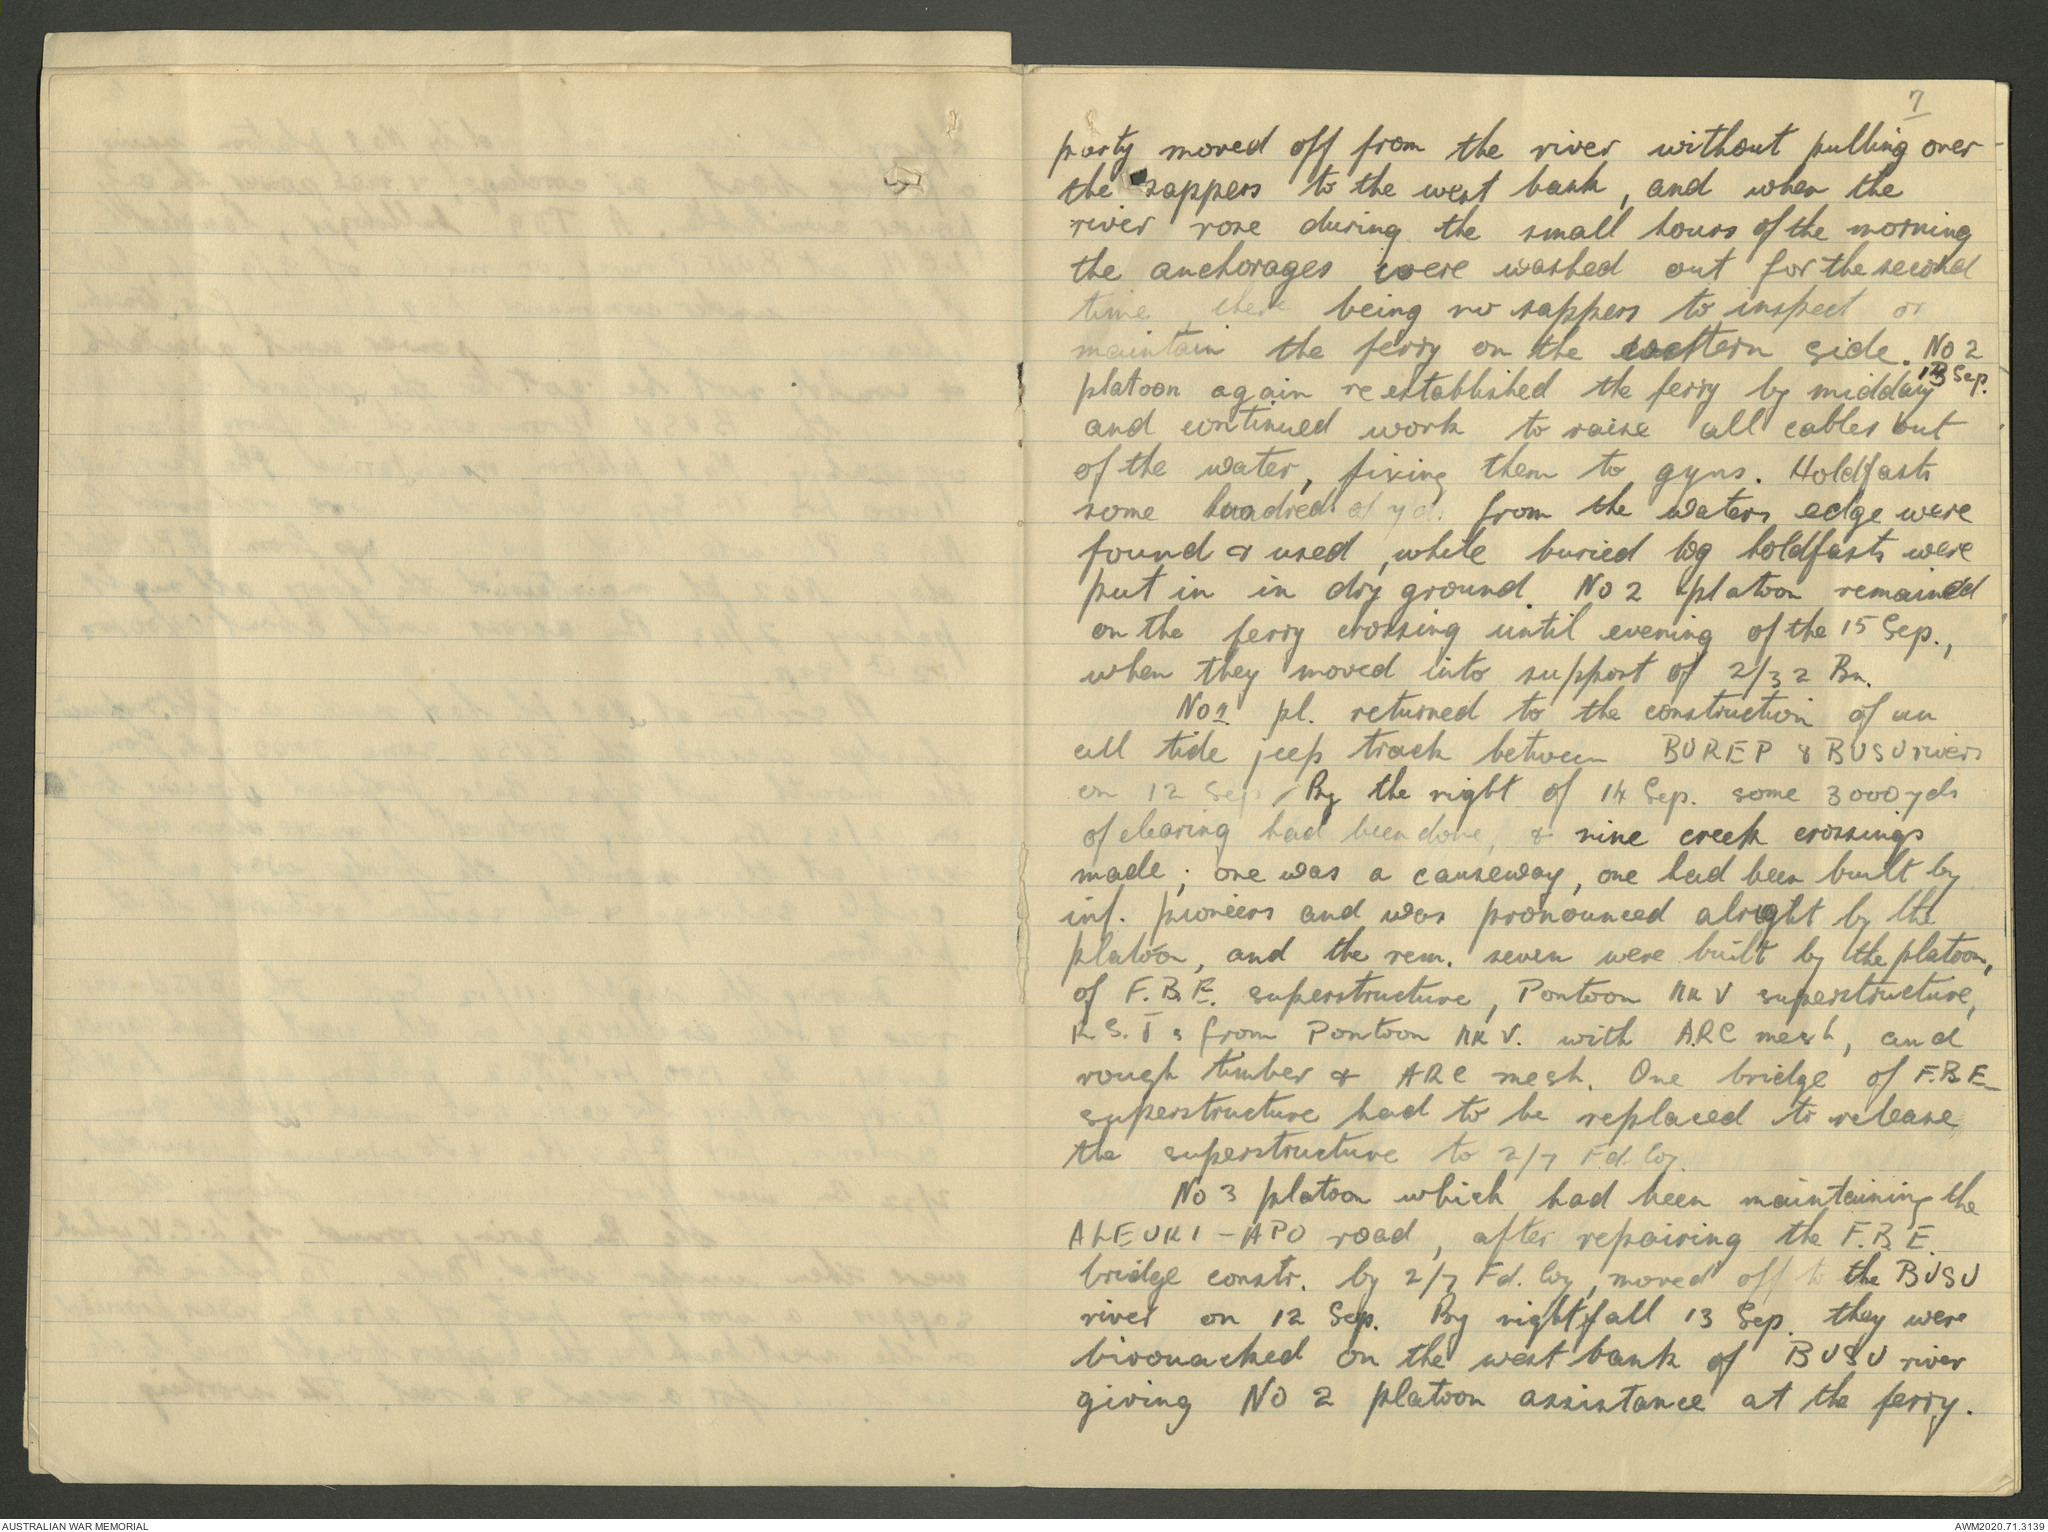 7
party moved off from the river without pulling over
the sappers to the west bank, and when the
river rose during the small hours of the morning
the anchorages were washed out for the second
time, there being no sappers to inspect or
maintain the ferry on the western side. No 2
platoon again reestablished the ferry by midday 13 Sep.
and continued work to raise all cables out
of the water, fixing them to gyns. Holdfasts
some hundred of yds. from the waters edge were
found & used, while buried log holdfasts were
put in in dry ground. No 2 platoon remained
on the ferry crossing until evening of the 15 Sep.,
when they moved into support of 2/32 Bn.
No 1 pl. returned to the construction of an
all tide jeep track between BUREP & BUSU rivers
on 12 Sep. By the night of 14 Sep. some 3000 yds
of clearing had been done, & nine creek crossings
made; one was a causeway, one had been built by
inf. pioneers and was pronounced alright by the
platoon, and the rem. seven were built by the platoon,
of F.B.E. superstructure, Pontoon Mk V superstructure,
R.S.Js from Pontoon Mk V. with ARC mesh, and
rough timber & ARC mesh. One bridge of F.B.E.
superstructure had to be replaced to release
the superstructure to 2/7 Fd. Coy.
No 3 platoon which had been maintaining the
ALEUKI - APO road, after repairing the F.B.E.
bridge constr. by 2/7 Fd. Coy, moved off to the BUSU
river on 12 Sep. By nightfall 13 Sep. they were
bivouacked on the west bank of BUSU river
giving No 2 platoon assistance at the ferry.
AUSTRALIAN WAR MEMORIAL
AWM2020.71.3139